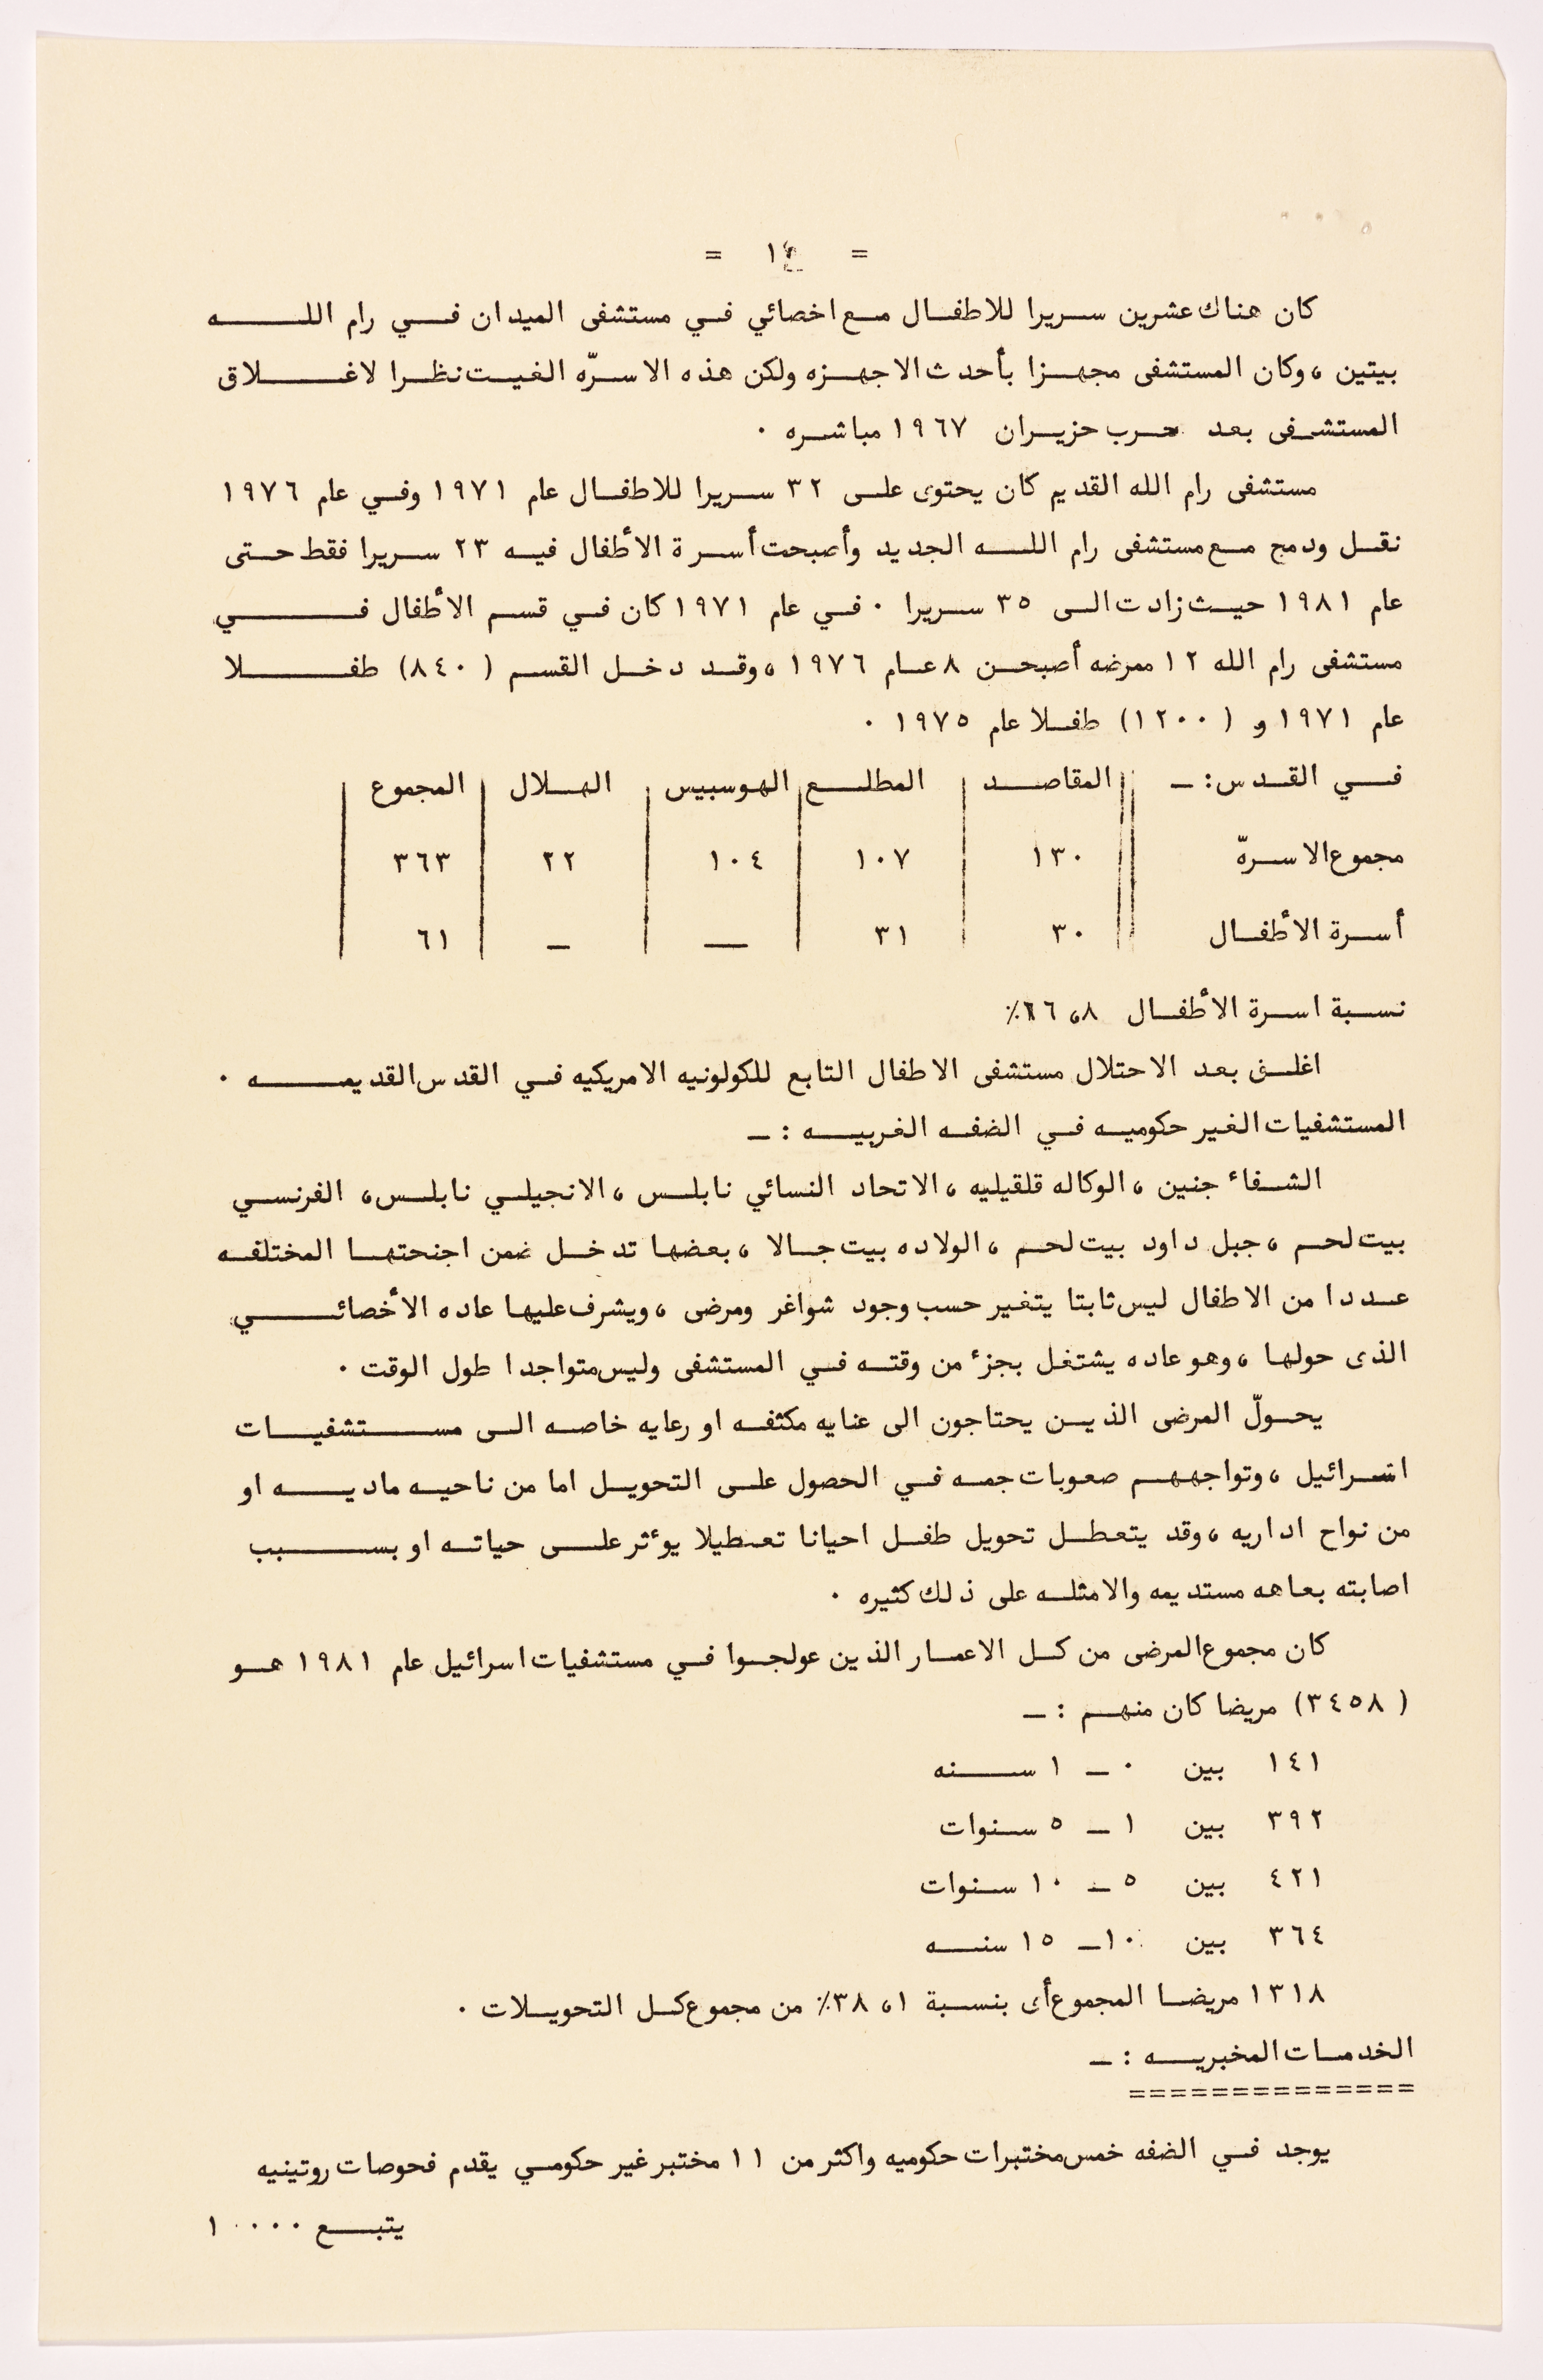 = ١٤ =
كان هناك عشرين سريرا للاطفال مع اخصائي في مستشفى الميدان في رام الله
بيتين ، وكان المستشفى مجهزا بأحدث الاجهزه ولكن هذه الاسرّه الغيت نظرا لاغلاق
المستشفى بعد حرب حزيران ١٩٦٧ مباشره ٠
مستشفى رام الله القديم كان يحتوى على ٣٢ سريرا للاطفال عام ١٩٧١ وفي عام ١٩٧٦
نقل ودمج مع مستشفى رام الله الجديد وأصبحت أسرة الأطفال فيه ٢٣ سريرا فقط حتى
عام ١٩٨١ حيث زادت الى ٣٥ سريرا ٠ في عام ١٩٧١ كان في قسم الأطفال في
مستشفى رام الله ١٢ ممرضه أصبحن ٨ عام ١٩٧٦ ، وقد دخل القسم ( ٨٤٠ ) طفلا
عام ١٩٧١ و ( ١٢٠٠ ) طفلا عام ١٩٧٥ ٠
في القدس : ـ المقاصد المطلع الهوسبيس الهلال المجموع
مجموع الاسرّة ١٣٠ ١٠٧ ١٠٤ ٢٢ ٣٦٣
أسرة الأطفال ٣٠ ٣١ ـ ـ ٦١
نسبة اسرة الأطفال ٨، ١٦٪
اغلق بعد الاحتلال مستشفى الاطفال التابع للكولونيه الامريكيه في القدس القديمه ٠
المستشفيات الغير حكوميه في الضفه الغربيه : ـ
الشفاء جنين ، الوكاله قلقيليه ، الاتحاد النسائي نابلس ، الانجيلي نابلس ، الفرنسي
بيت لحم ، جبل داود بيت لحم ، الولاده بيت جالا ، بعضها تدخل ضمن اجنحتها المختلفه
عددا من الاطفال ليس ثابتا يتغير حسب وجود شواغر ومرضى ، ويشرف عليها عاده الأخصائي
الذى حولها ، وهو عاده يشتغل بجزء من وقته في المستشفى وليس متواجدا طول الوقت ٠
يحولّ المرضى الذين يحتاجون الى عنايه مكثفه او رعايه خاصه الى مستشفيات
اسرائيل ، وتواجههم صعوبات جمه في الحصول على التحويل اما من ناحيه ماديه او
من نواح اداريه ، وقد يتعطل تحويل طفل احيانا تعطيلا يوءثر على حياته او بسبب
اصابته بعاهه مستديمه والامثله على ذلك كثيره ٠
كان مجموع المرضى من كل الاعمار الذين عولجوا في مستشفيات اسرائيل عام ١٩٨١ هو
( ٣٤٥٨ ) مريضا كان منهم : ـ
١٤١ بين ٠ ـ ١ سنه
٣٩٢ بين ١ ـ ٥ سنوات
٤٢١ بين ٥ ـ ١٠ سنوات
٣٦٤ بين ١٠ ـ ١٥ سنه
١٣١٨ مريضا المجموع أى بنسبة ١، ٣٨٪ من مجموع كل التحويلات ٠
الخدمات المخبريه : ـ
==============
يوجد في الضفه خمس مختبرات حكوميه واكثر من ١١ مختبر غير حكومي يقدم فحوصات روتينيه
يتبع ٠٠٠٠ ١